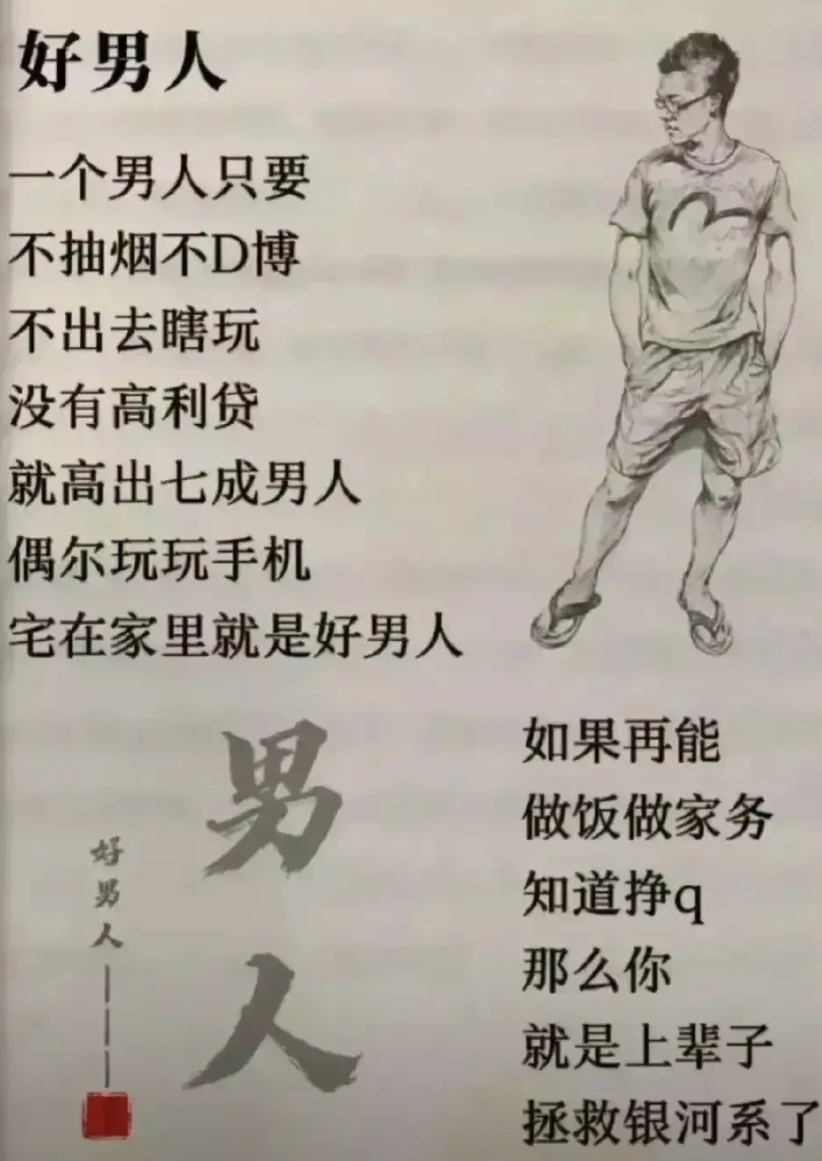 好男人
一个男人只要
不抽烟不D博
不出去瞎玩
没有高利贷
就高出七成男人
偶尔玩玩手机
宅在家里就是好男人
如果再能
做饭做家务
知道挣q
那么你
就是上辈子
拯救银河系了
男人
好男人